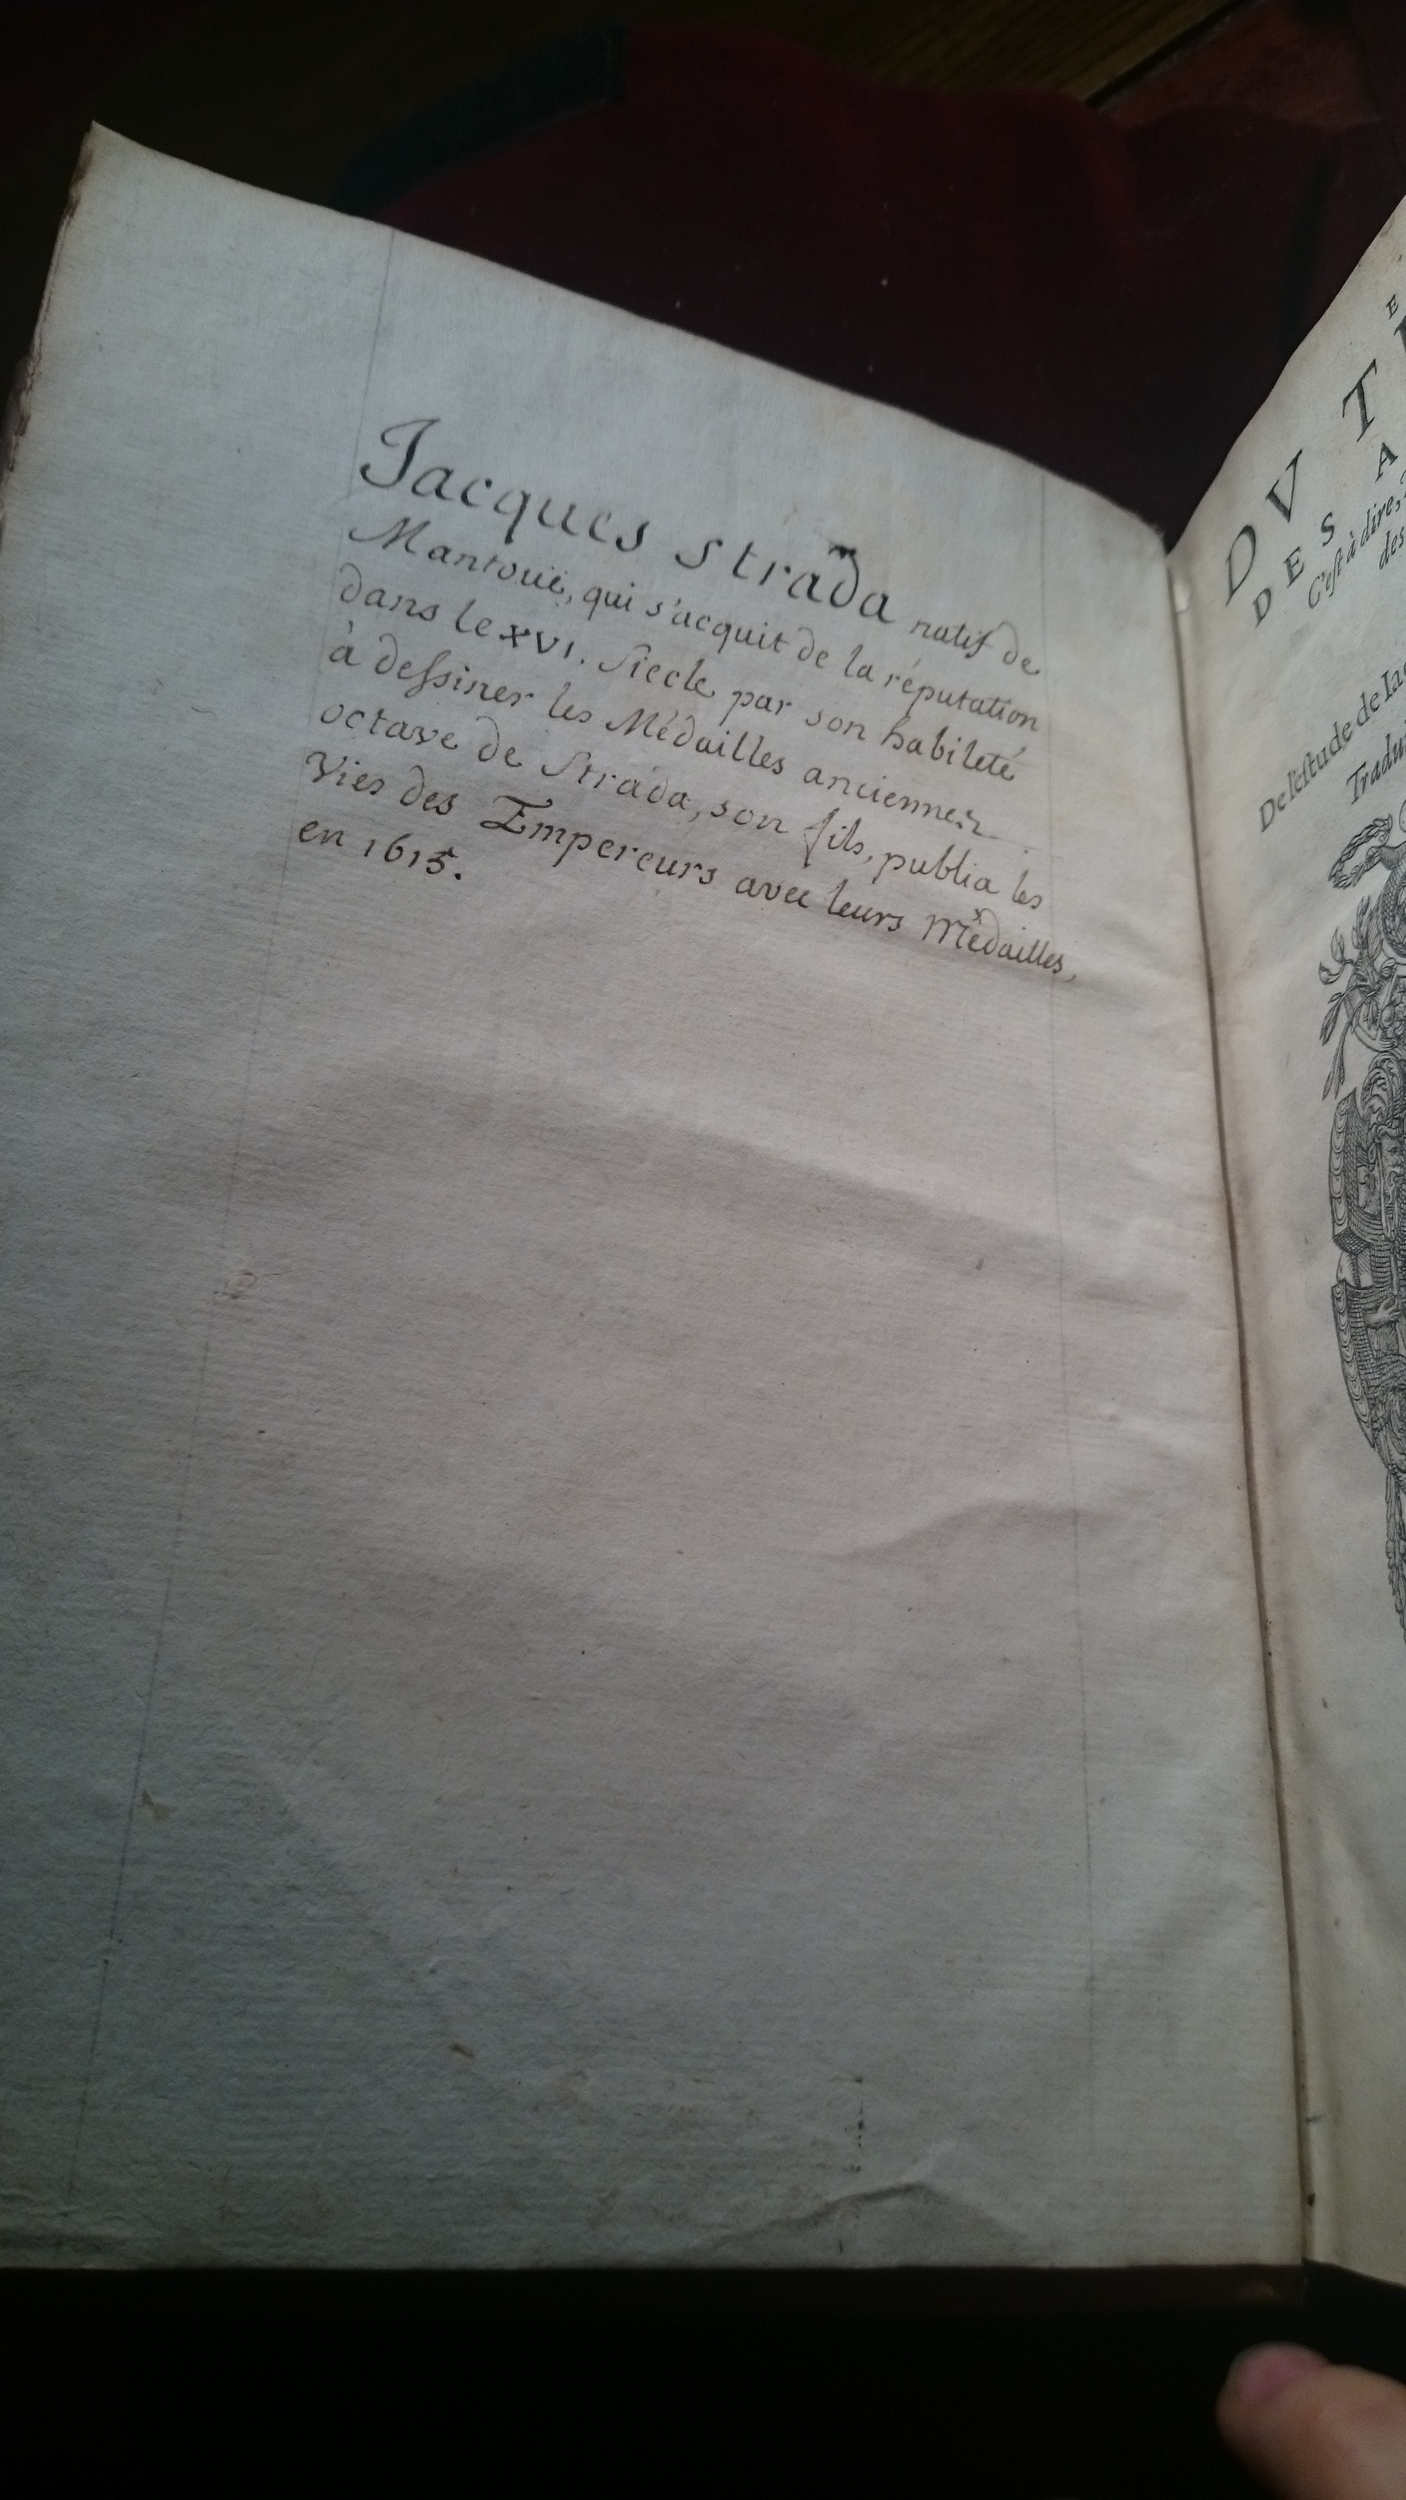 Jacques Strada natif de
Mantouë, qui s'acquit de la réputation
dans le XVI. Siecle par son habileté
à dessiner les Médailles anciennes
octave de Strada, son fils, publia les
Vies des Empereurs avec leurs Médailles,
en 1615.
E
DV T
DES A
C'est à dire,
des
De l'estude de Iac
Tradui